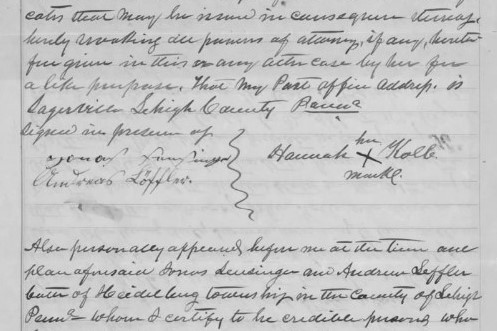 cates that may be issued in consequence thereof
hereby revoking all powers of attorney, if any, hereto
fore given in this or any other case by her for
a like purpose. That my Post office address is
Sagerville Lehigh County Penna
Signed in presence of
Jonas Sensinger
Andreas Löffler.
her
Hannah X Kolb
mark.
Also personally appeared before me at the time and
place aforesaid Jonas Sensinger and Andrew Leffler
both of Heidelberg township in the County of Lehigh
Penna whom I certify to be credible persons who